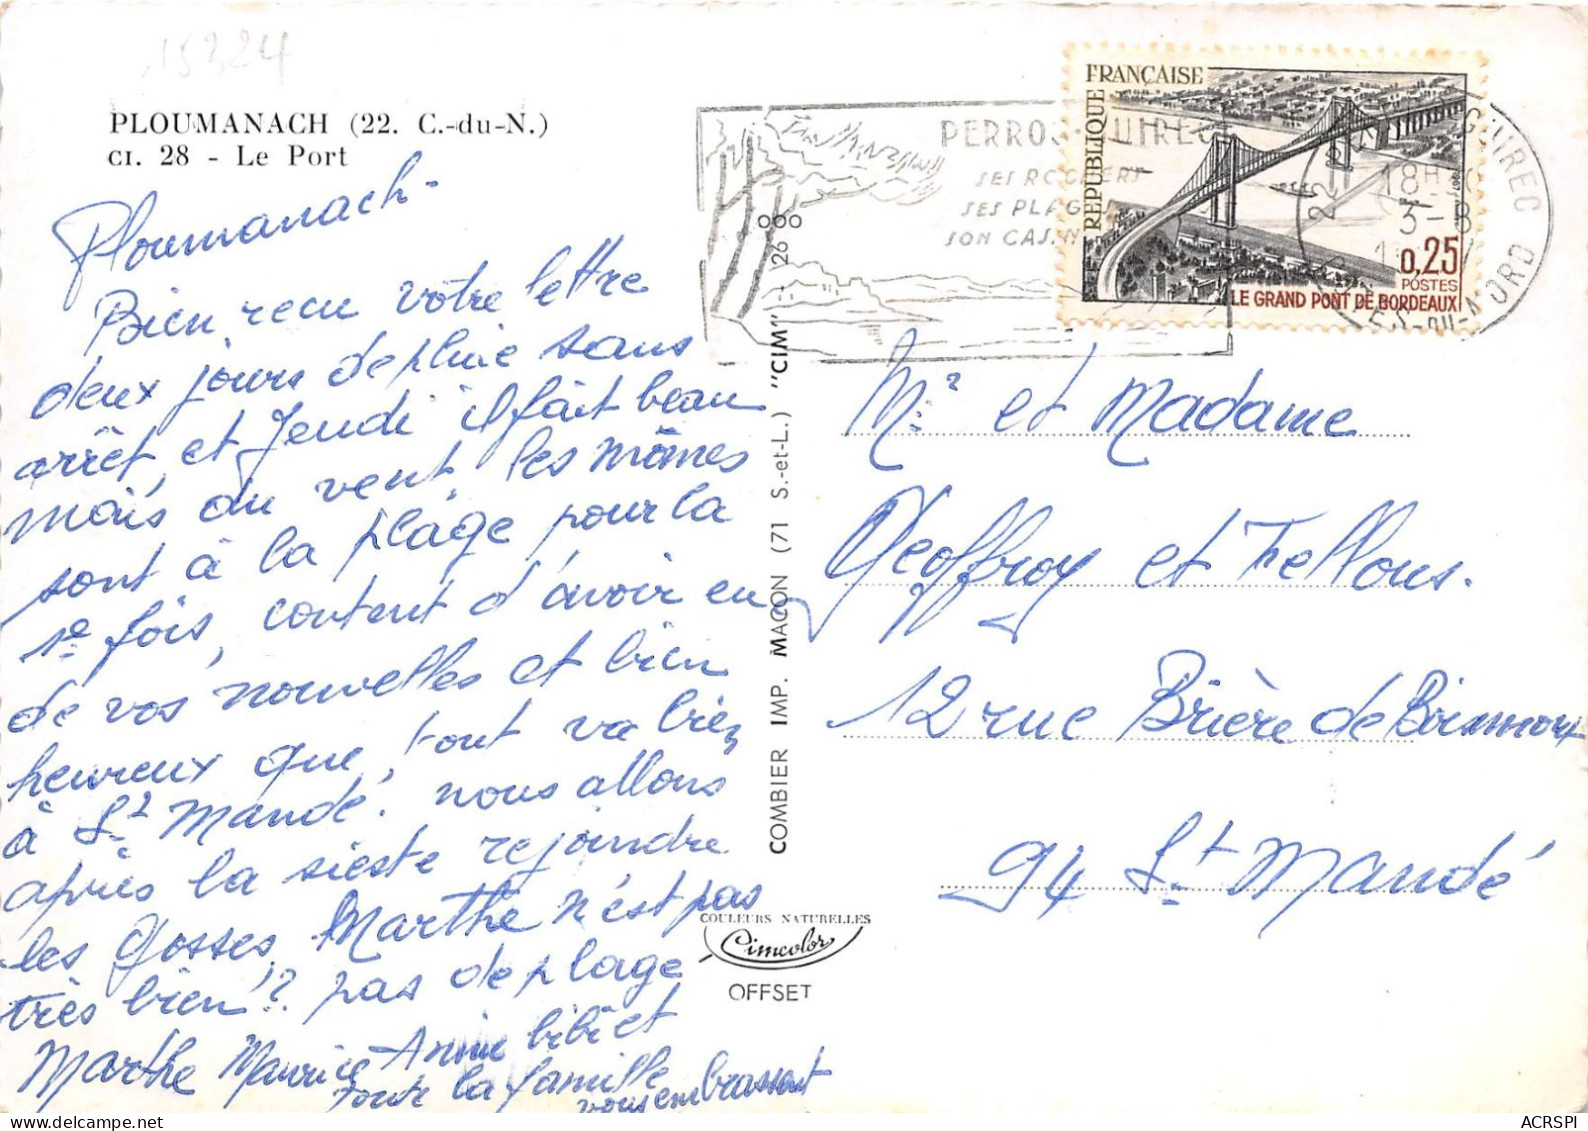 15324
PLOUMANACH (22. C.-du-N.)
CI. 28 - Le Port
Ploumanach-
Bien recu votre lettre
deux jours de pluie sans
arrêt, et Jeudi il fait beau
mais du vent, les mômes
sont à la plage pour la
1e fois, content d'avoir eu
de vos nouvelles et bien
heureux que, tout va bien
à St Mandé. nous allons
après la sieste rejoindre
les Gosses, Marthe n'est pas
très bien ? pas de plage
Marthe Maurice Annie bibi et
toute la famille
vous embrassent
COMBIER IMP. MACON (71 S.-et-L.) "CIM" - 26 000
COULEURS NATURELLES
Cimcolor
OFFSET
PERROS-GUIREC
SES ROCHERS
SES PLAGES
SON CASINO
RÉPUBLIQUE FRANÇAISE
0,25
POSTES
LE GRAND PONT DE BORDEAUX
GUIREC
22
18H
3-8
DU-NORD
Mr et Madame
Geoffroy et Fellous.
12 rue Brière de Boismont
94 St Mandé
ACRSPI